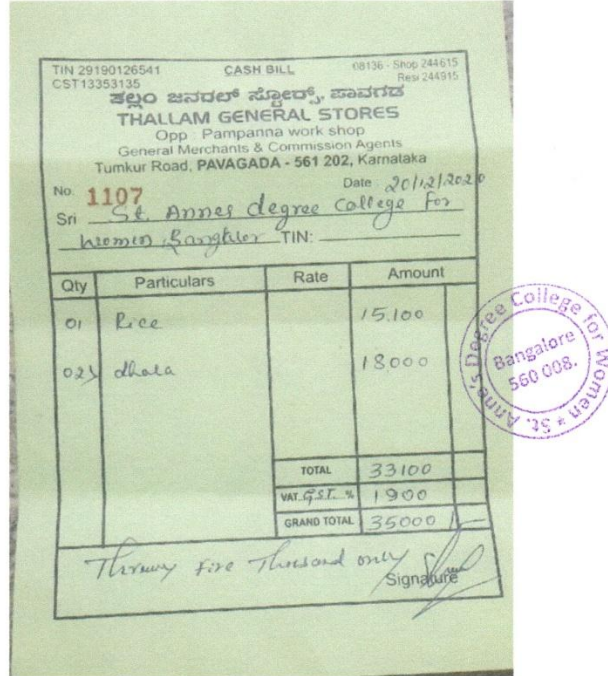 TIN 29190126541 CASH BILL 08136 - Shop 244615
CST13353135 Resi 244915
ತಲ್ಲಂ ಜನರಲ್ ಸ್ಟೋರ್ಸ್, ಪಾವಗಡ
THALLAM GENERAL STORES
Opp : Pampanna work shop
General Merchants & Commission Agents
Tumkur Road, PAVAGADA - 561 202, Karnataka
No. 1107 Date 20/12/2020
Sri St. Annes degree College for
women TIN:
Qty Particulars Rate Amount
01 Rice 15.100
02 dhala 18000
TOTAL 33100
VAT GST. % 1900
GRAND TOTAL 35000
Five Thousand only
Signature
St. Anne's Degree College for Women *
Bangalore
560 008.